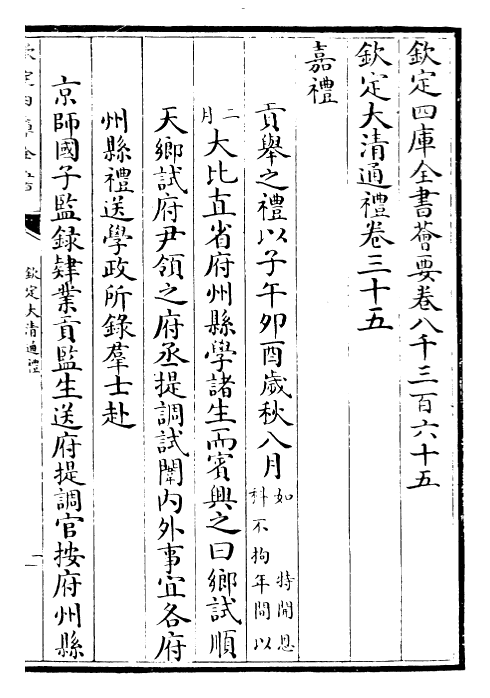 欽定四庫全書薈要卷八千三百六十五
欽定大清通禮卷三十五
嘉禮
貢舉之禮以子午卯酉歲秋八月如特開恩科不拘年間以
二月大比直省府州縣學諸生而賓興之曰鄉試順
天鄉試府尹領之府丞提調試闈內外事宜各府
州縣禮送學政所錄羣士赴
京師國子監錄肄業貢監生送府提調官按府州縣
欽定大清通禮
一